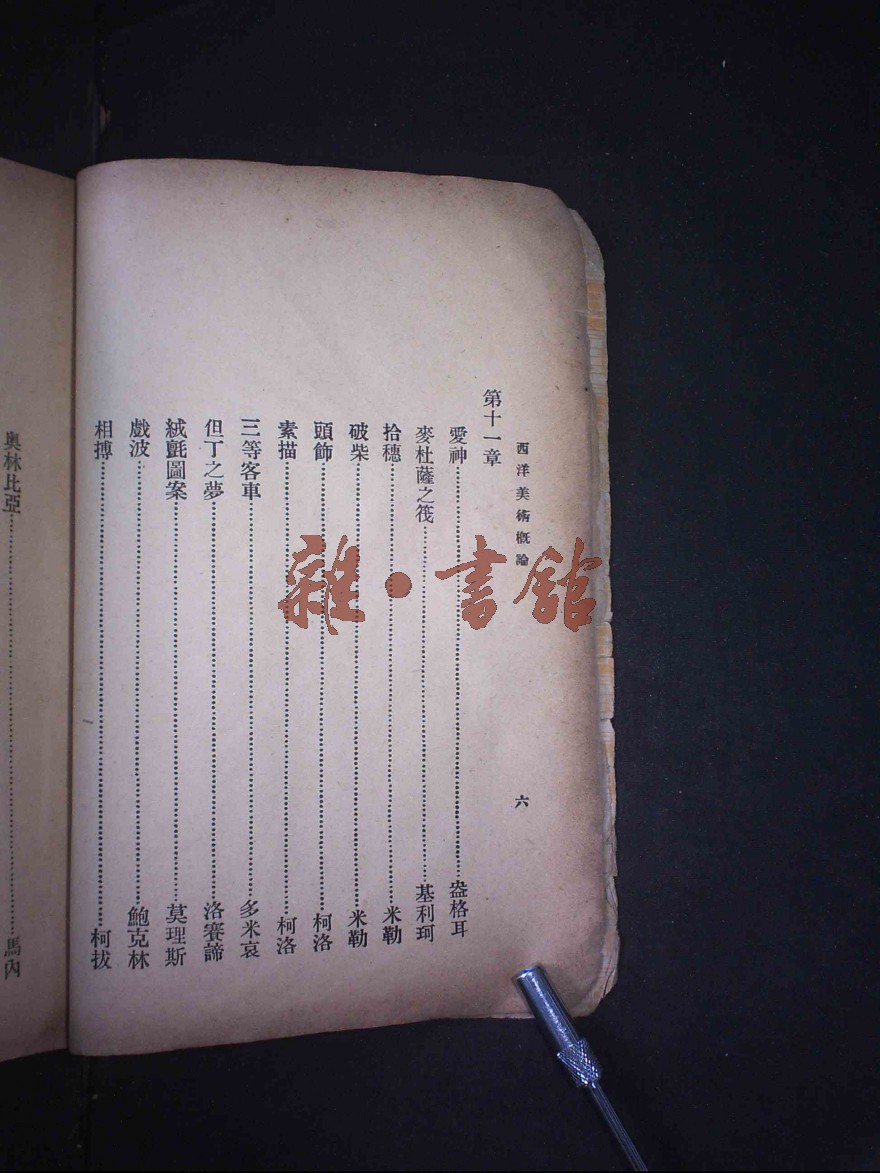 西洋美術概論
六
第十一章
愛神……盎格耳
麥杜薩之筏……基利珂
拾穗……米勒
破柴……米勒
頭飾……柯洛
素描……柯洛
三等客車……多米哀
但丁之夢……洛賽諦
絨氈圖案……莫理斯
戲波……鮑克林
相搏……柯拔
奧林比亞……馬內
雜·書館